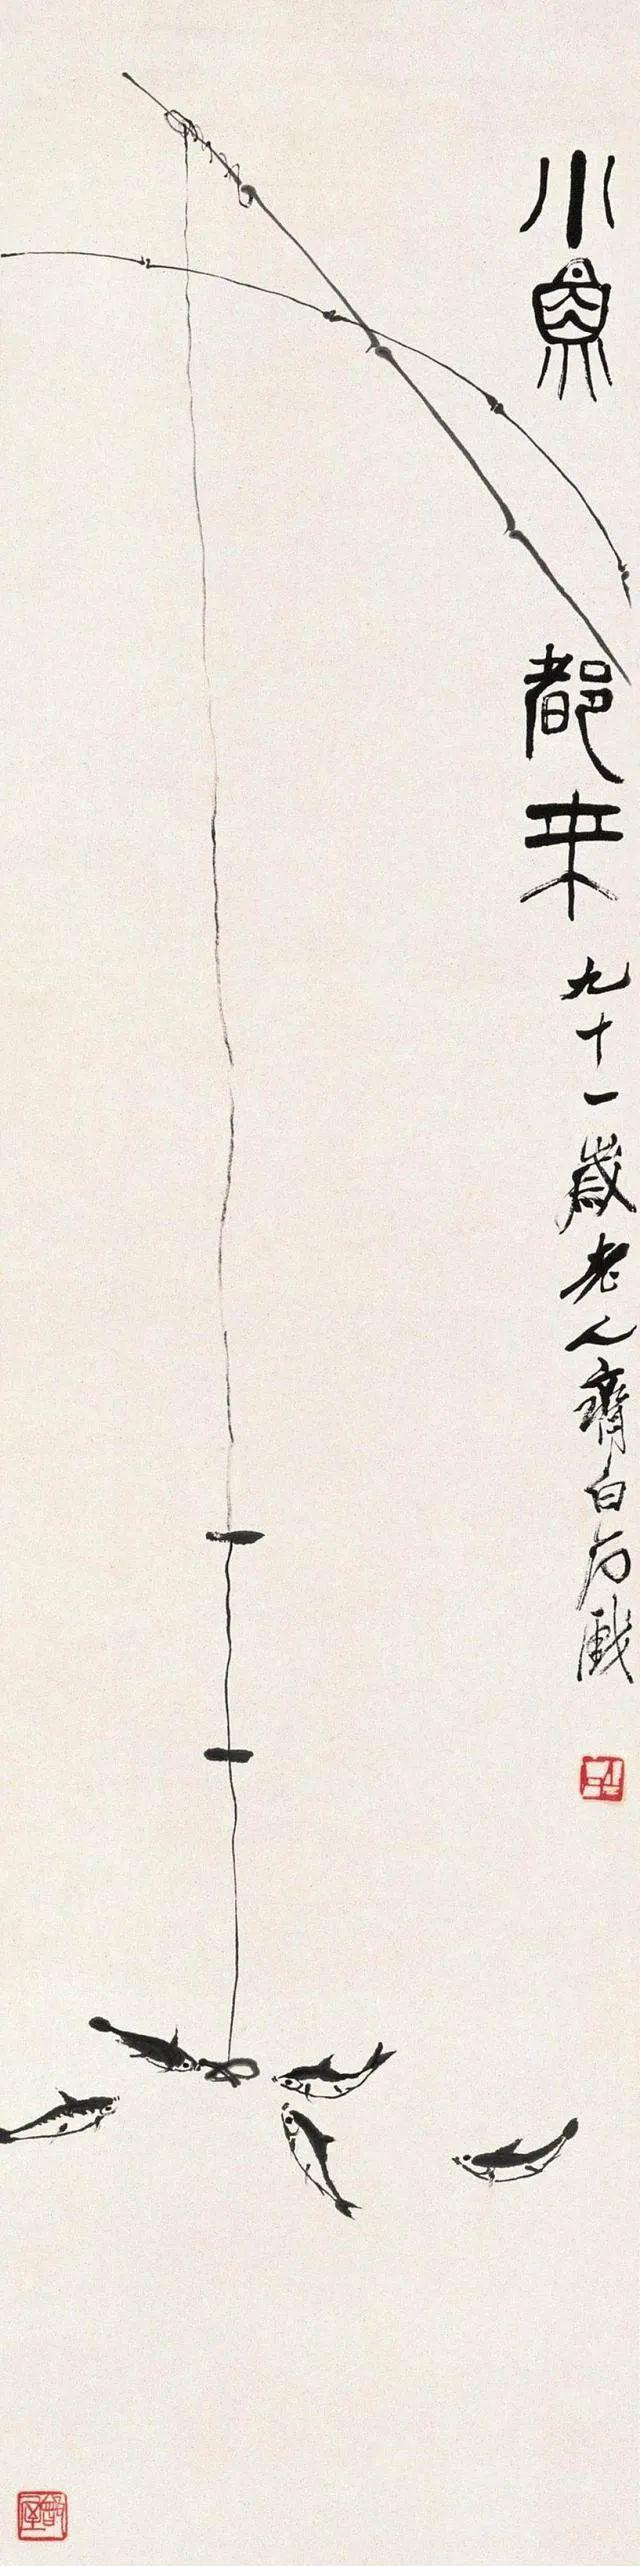 小魚都來
九十一歲老人齊白石戲